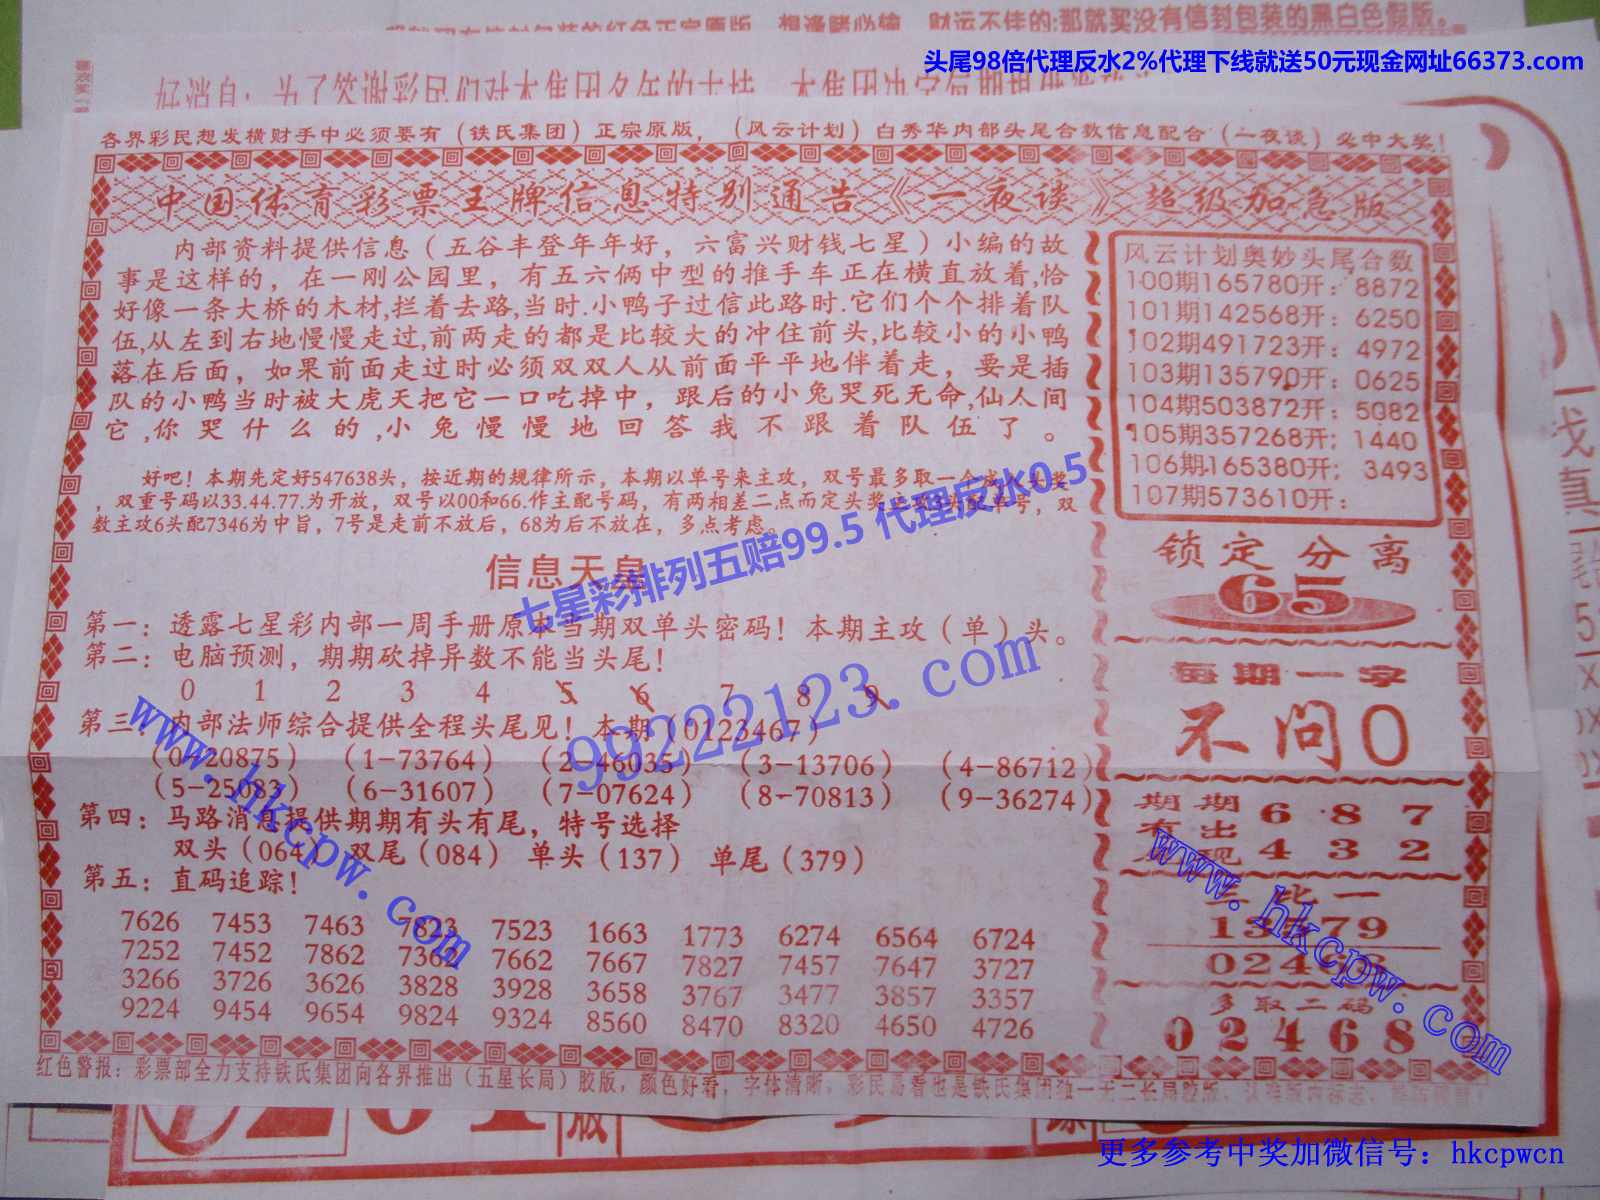 财运不佳的:那就买没有信封包装的黑白色假版。
头尾98倍代理反水2%代理下线就送50元现金网址66373.com
各界彩民想发横财手中必须要有（铁氏集团）正宗原版，（风云计划）白秀华内部头尾合数信息配合（一夜谈）必中大奖！
中国体育彩票王牌信息特别通告《一夜谈》超级加急版
内部资料提供信息（五谷丰登年年好，六富兴财钱七星）小编的故
事是这样的，在一刚公园里，有五六俩中型的推手车正在横直放着,恰
好像一条大桥的木材,拦着去路,当时.小鸭子过信此路时.它们个个排着队
伍,从左到右地慢慢走过,前两走的都是比较大的冲住前头,比较小的小鸭
落在后面，如果前面走过时必须双双人从前面平平地伴着走，要是插
队的小鸭当时被大虎天把它一口吃掉中，跟后的小兔哭死无命,仙人间
它,你哭什么的,小兔慢慢地回答我不跟着队伍了。
好吧！本期先定好547638头，按近期的规律所示，本期以单号来主攻，双号最多取一个
，双重号码以33.44.77.为开放，双号以00和66.作主配号码，有两相差二点而定头奖
数主攻6头配7346为中旨，7号是走前不放后，68为后不放在，多点考虑。
信息天皇
第一：透露七星彩内部一周手册原本当期双单头密码！本期主攻（单）头。
第二：电脑预测，期期砍掉异数不能当头尾！
0 1 2 3 4 5 6 7 8 9
第三 内部法师综合提供全程头尾见！本期（0123467）
（0-20875） （1-73764） （2-46035） （3-13706） （4-86712）
（5-25083） （6-31607） （7-07624） （8-70813） （9-36274）
第四：马路消息提供期期有头有尾，特号选择
双头（064） 双尾（084） 单头（137） 单尾（379）
第五：直码追踪！
7626 7453 7463 7823 7523 1663 1773 6274 6564 6724
7252 7452 7862 7362 7662 7667 7827 7457 7647 3727
3266 3726 3626 3828 3928 3658 3767 3477 3857 3357
9224 9454 9654 9824 9324 8560 8470 8320 4650 4726
风云计划奥妙头尾合数
100期165780开：8872
101期142568开：6250
102期491723开：4972
103期135790开：0625
104期503872开：5082
105期357268开；1440
106期165380开；3493
107期573610开：
锁定分离
65
每期一字
不问0
期期 6 8 7
有出
现 4 3 2
比一
13579
02468
多取二码
02468
红色警报：彩票部全力支持铁氏集团向各界推出（五星长局）胶版，颜色好看，字体清晰，彩民易看也是铁氏集团独一无二长局胶版
七星彩排列五赔99.5 代理反水0.5
99222123.com
www.hkcpw.com
www.hkcpw.com
更多参考中奖加微信号：hkcpwcn